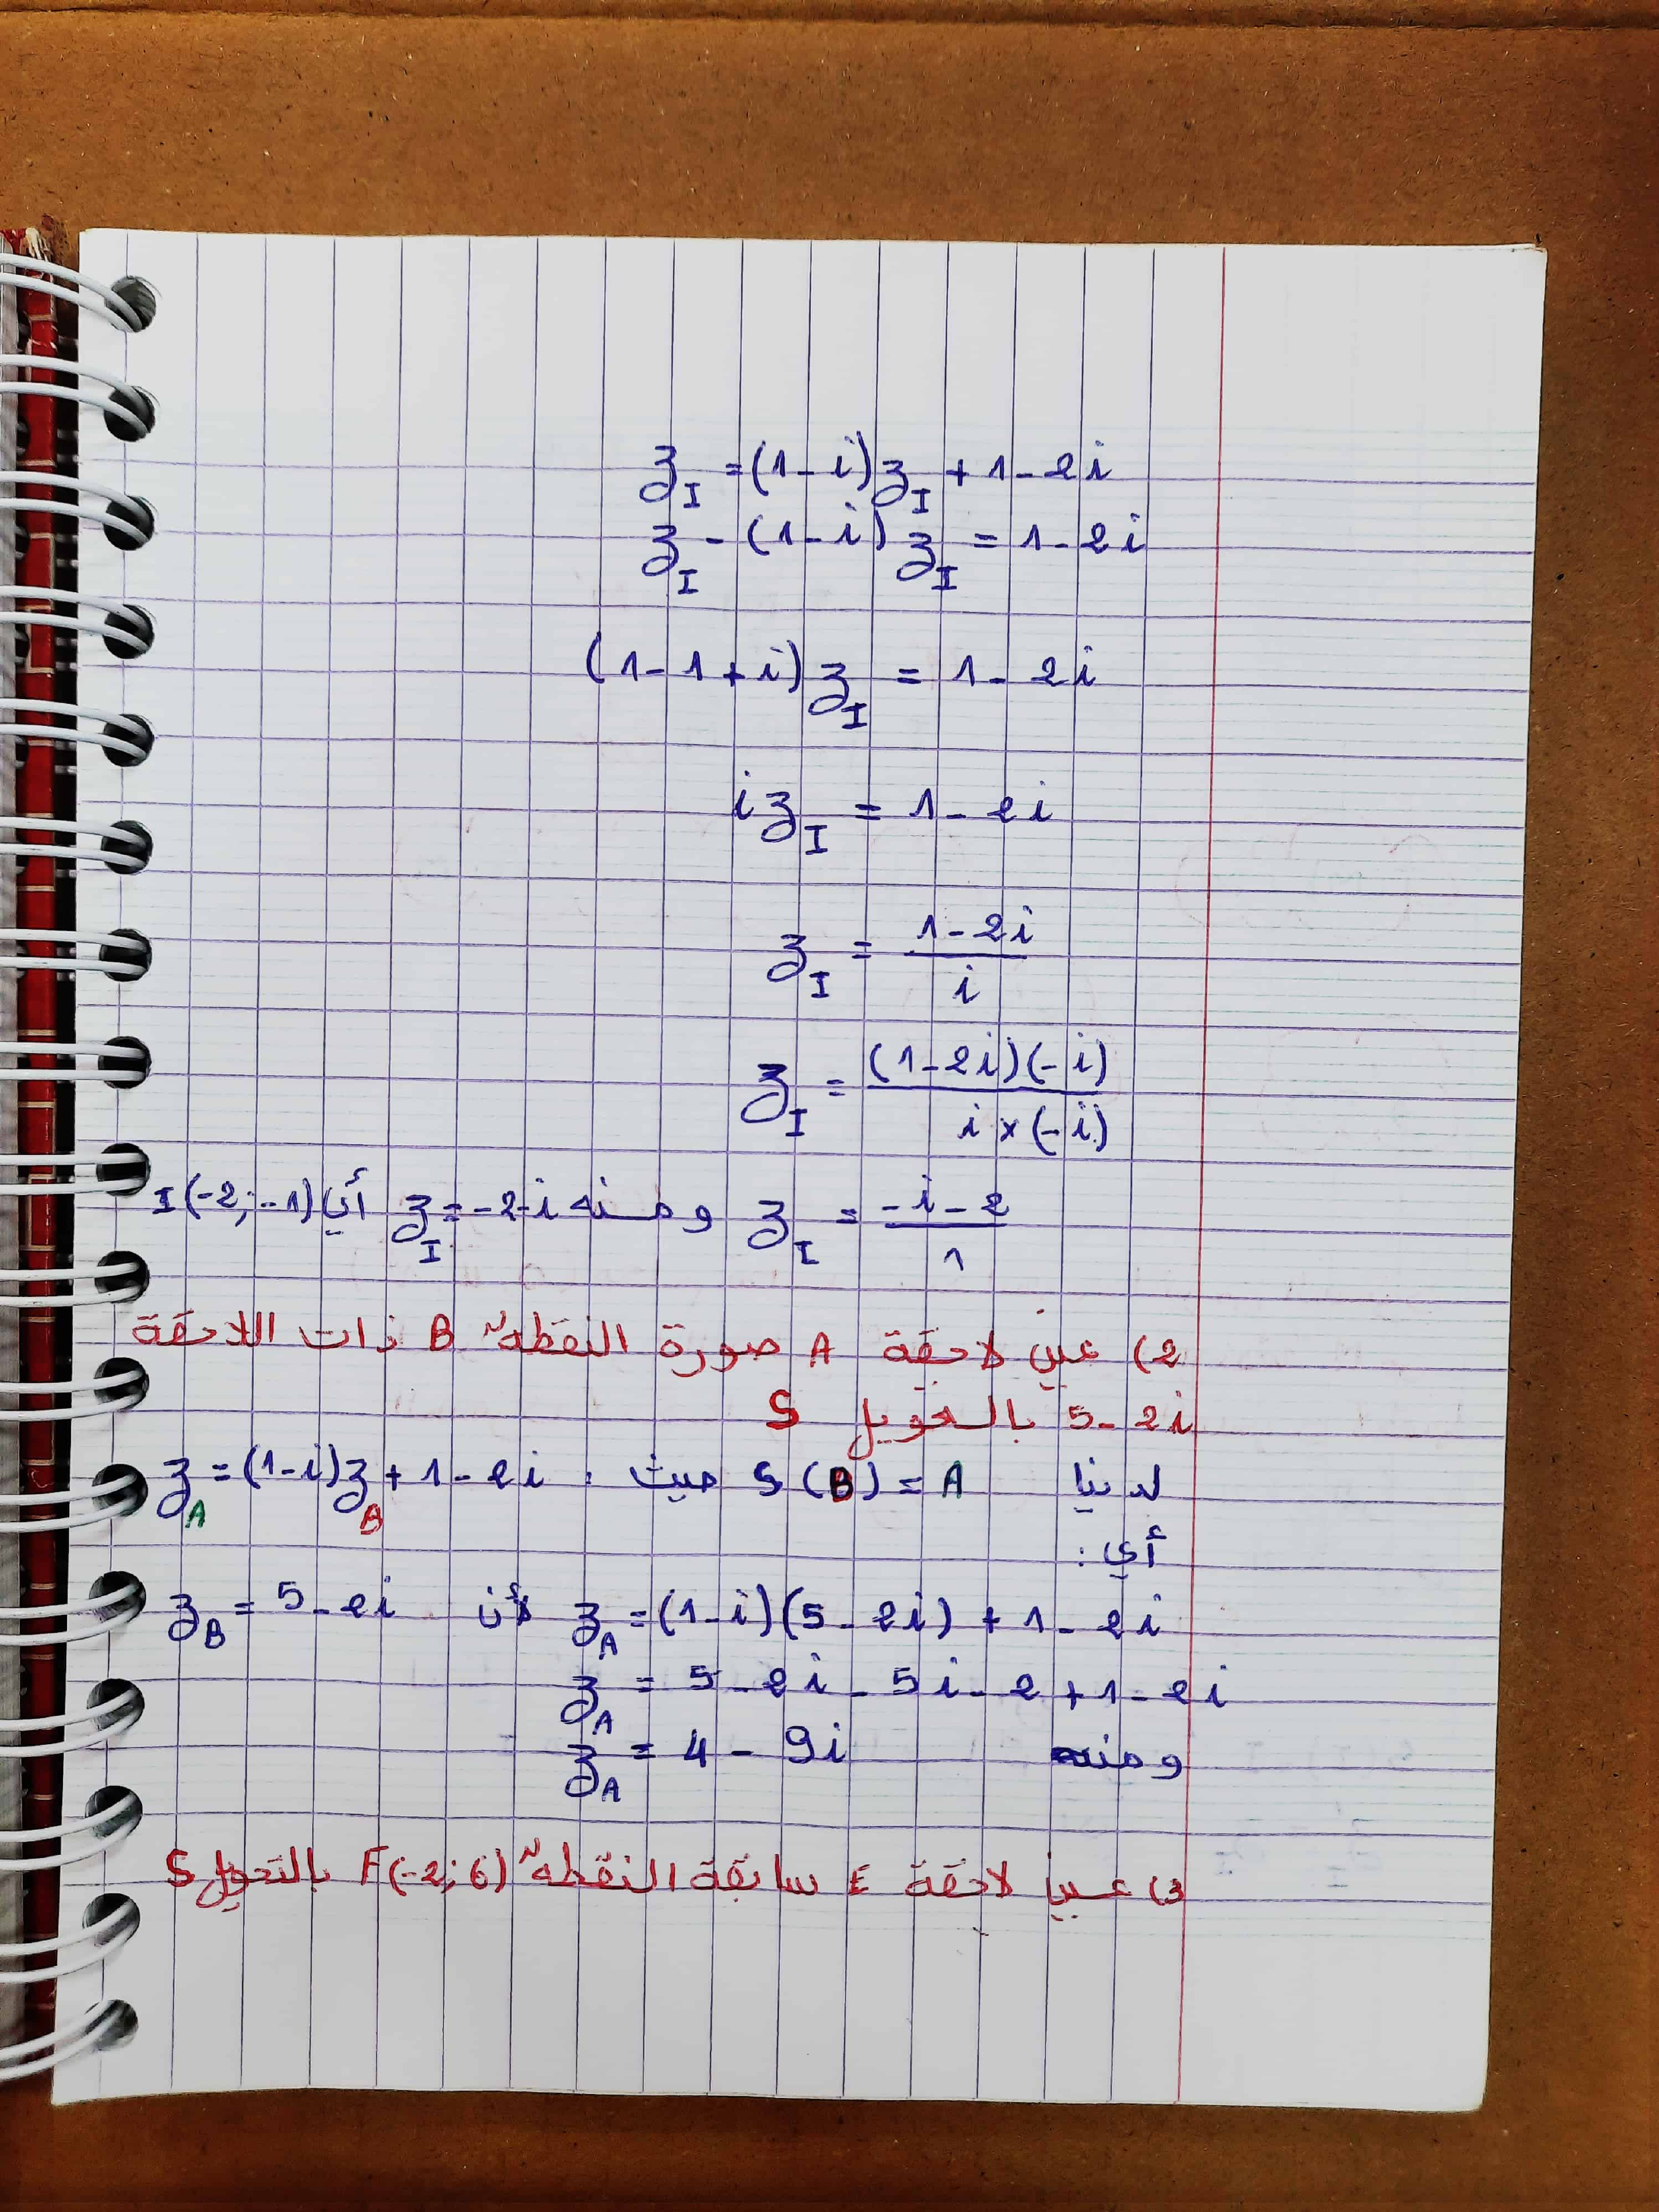 z_I = (1-i)z_I + 1-2i
z_I - (1-i)z_I = 1-2i
(1-1+i)z_I = 1-2i
i z_I = 1-2i
z_I = (1-2i)/i
z_I = ((1-2i)(-i))/(i×(-i))
z_I = (-i-2)/1 ومنه z_I = -2-i أي I(-2;-1)
2) عين لاحقة A صورة النقطة B ذات اللاحقة
5-2i بالتحويل S
لدينا S(B) = A حيث: z_A = (1-i)z_B + 1-2i
أي:
z_A = (1-i)(5-2i) + 1-2i لأن z_B = 5-2i
z_A = 5-2i-5i-2+1-2i
ومنه z_A = 4-9i
3) عين لاحقة E سابقة النقطة F(-2;6) بالتحويل S